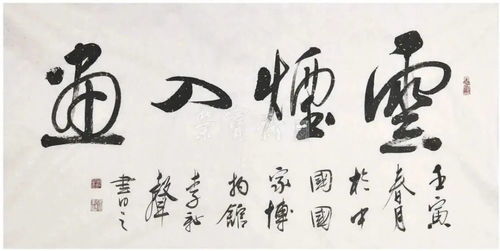 雲煙入畫
壬寅
春月
於中
國國
家博
物館
聲